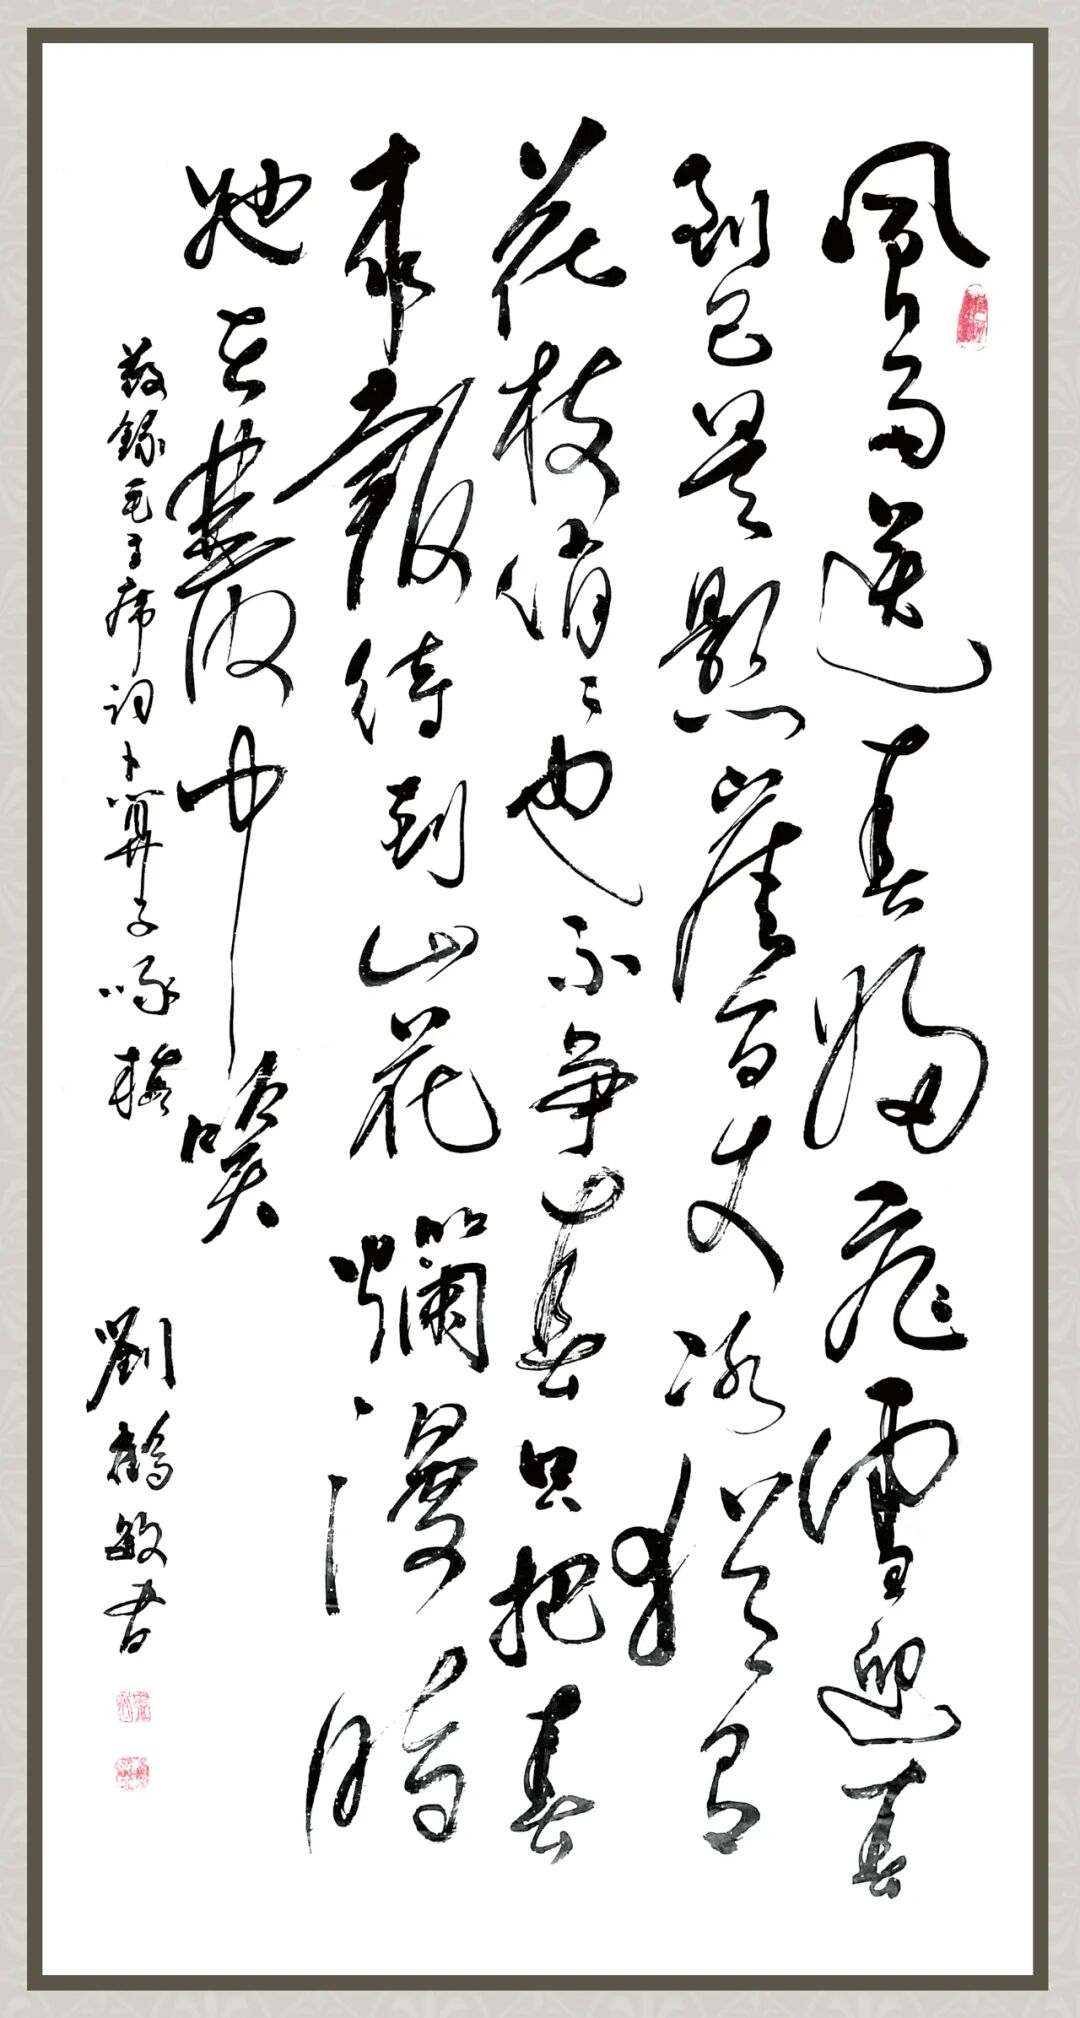 風雨送春歸飛雪迎春
到已是懸崖百丈冰猶有
花枝俏〻也不爭春只把春
來報待到山花爛漫時
她在叢中笑
敬錄毛主席詞卜算子咏梅
劉鶴敏書